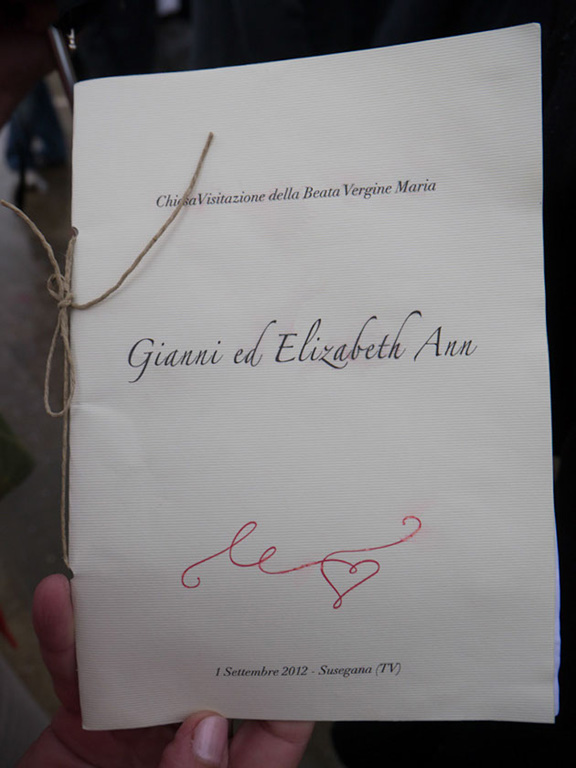 Chiesa Visitazione della Beata Vergine Maria
Gianni ed Elizabeth Ann
1 Settembre 2012 - Susegana (TV)